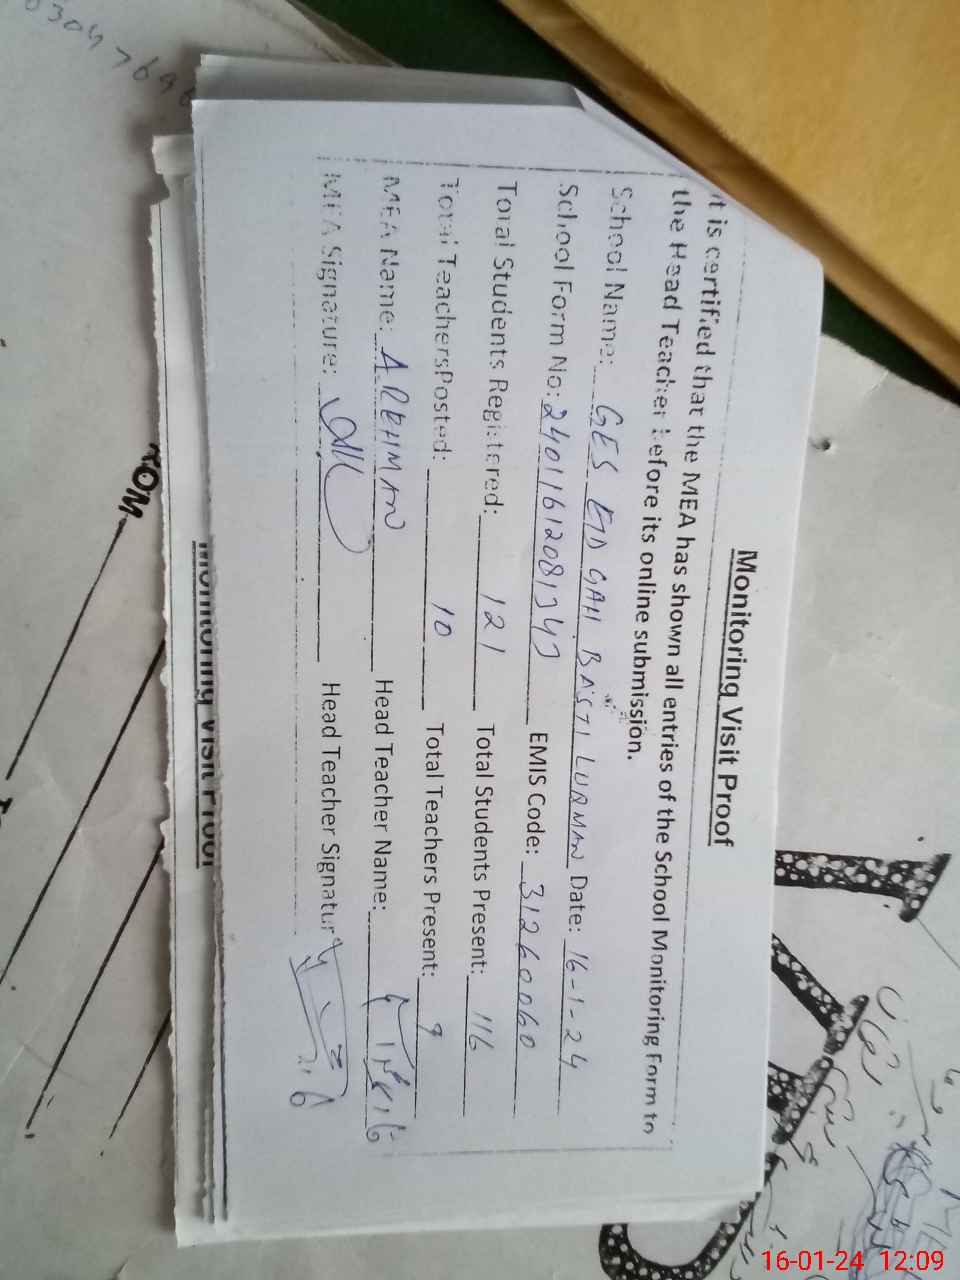 Monitoring Visit Proof
It is certified that the MEA has shown all entries of the School Monitoring Form to
the Head Teacher before its online submission.
School Name: GES EID GAH BASTI LUQMAN Date: 16-1-24
School Form No: EMIS Code: 31260060
Total Students Registered: 121 Total Students Present: 116
Total TeachersPosted: 10 Total Teachers Present: 9
MEA Name: A REHMAN Head Teacher Name:
MEA Signature: Head Teacher Signatur
Monitoring Visit Proof
TOM
16-01-24 12:09